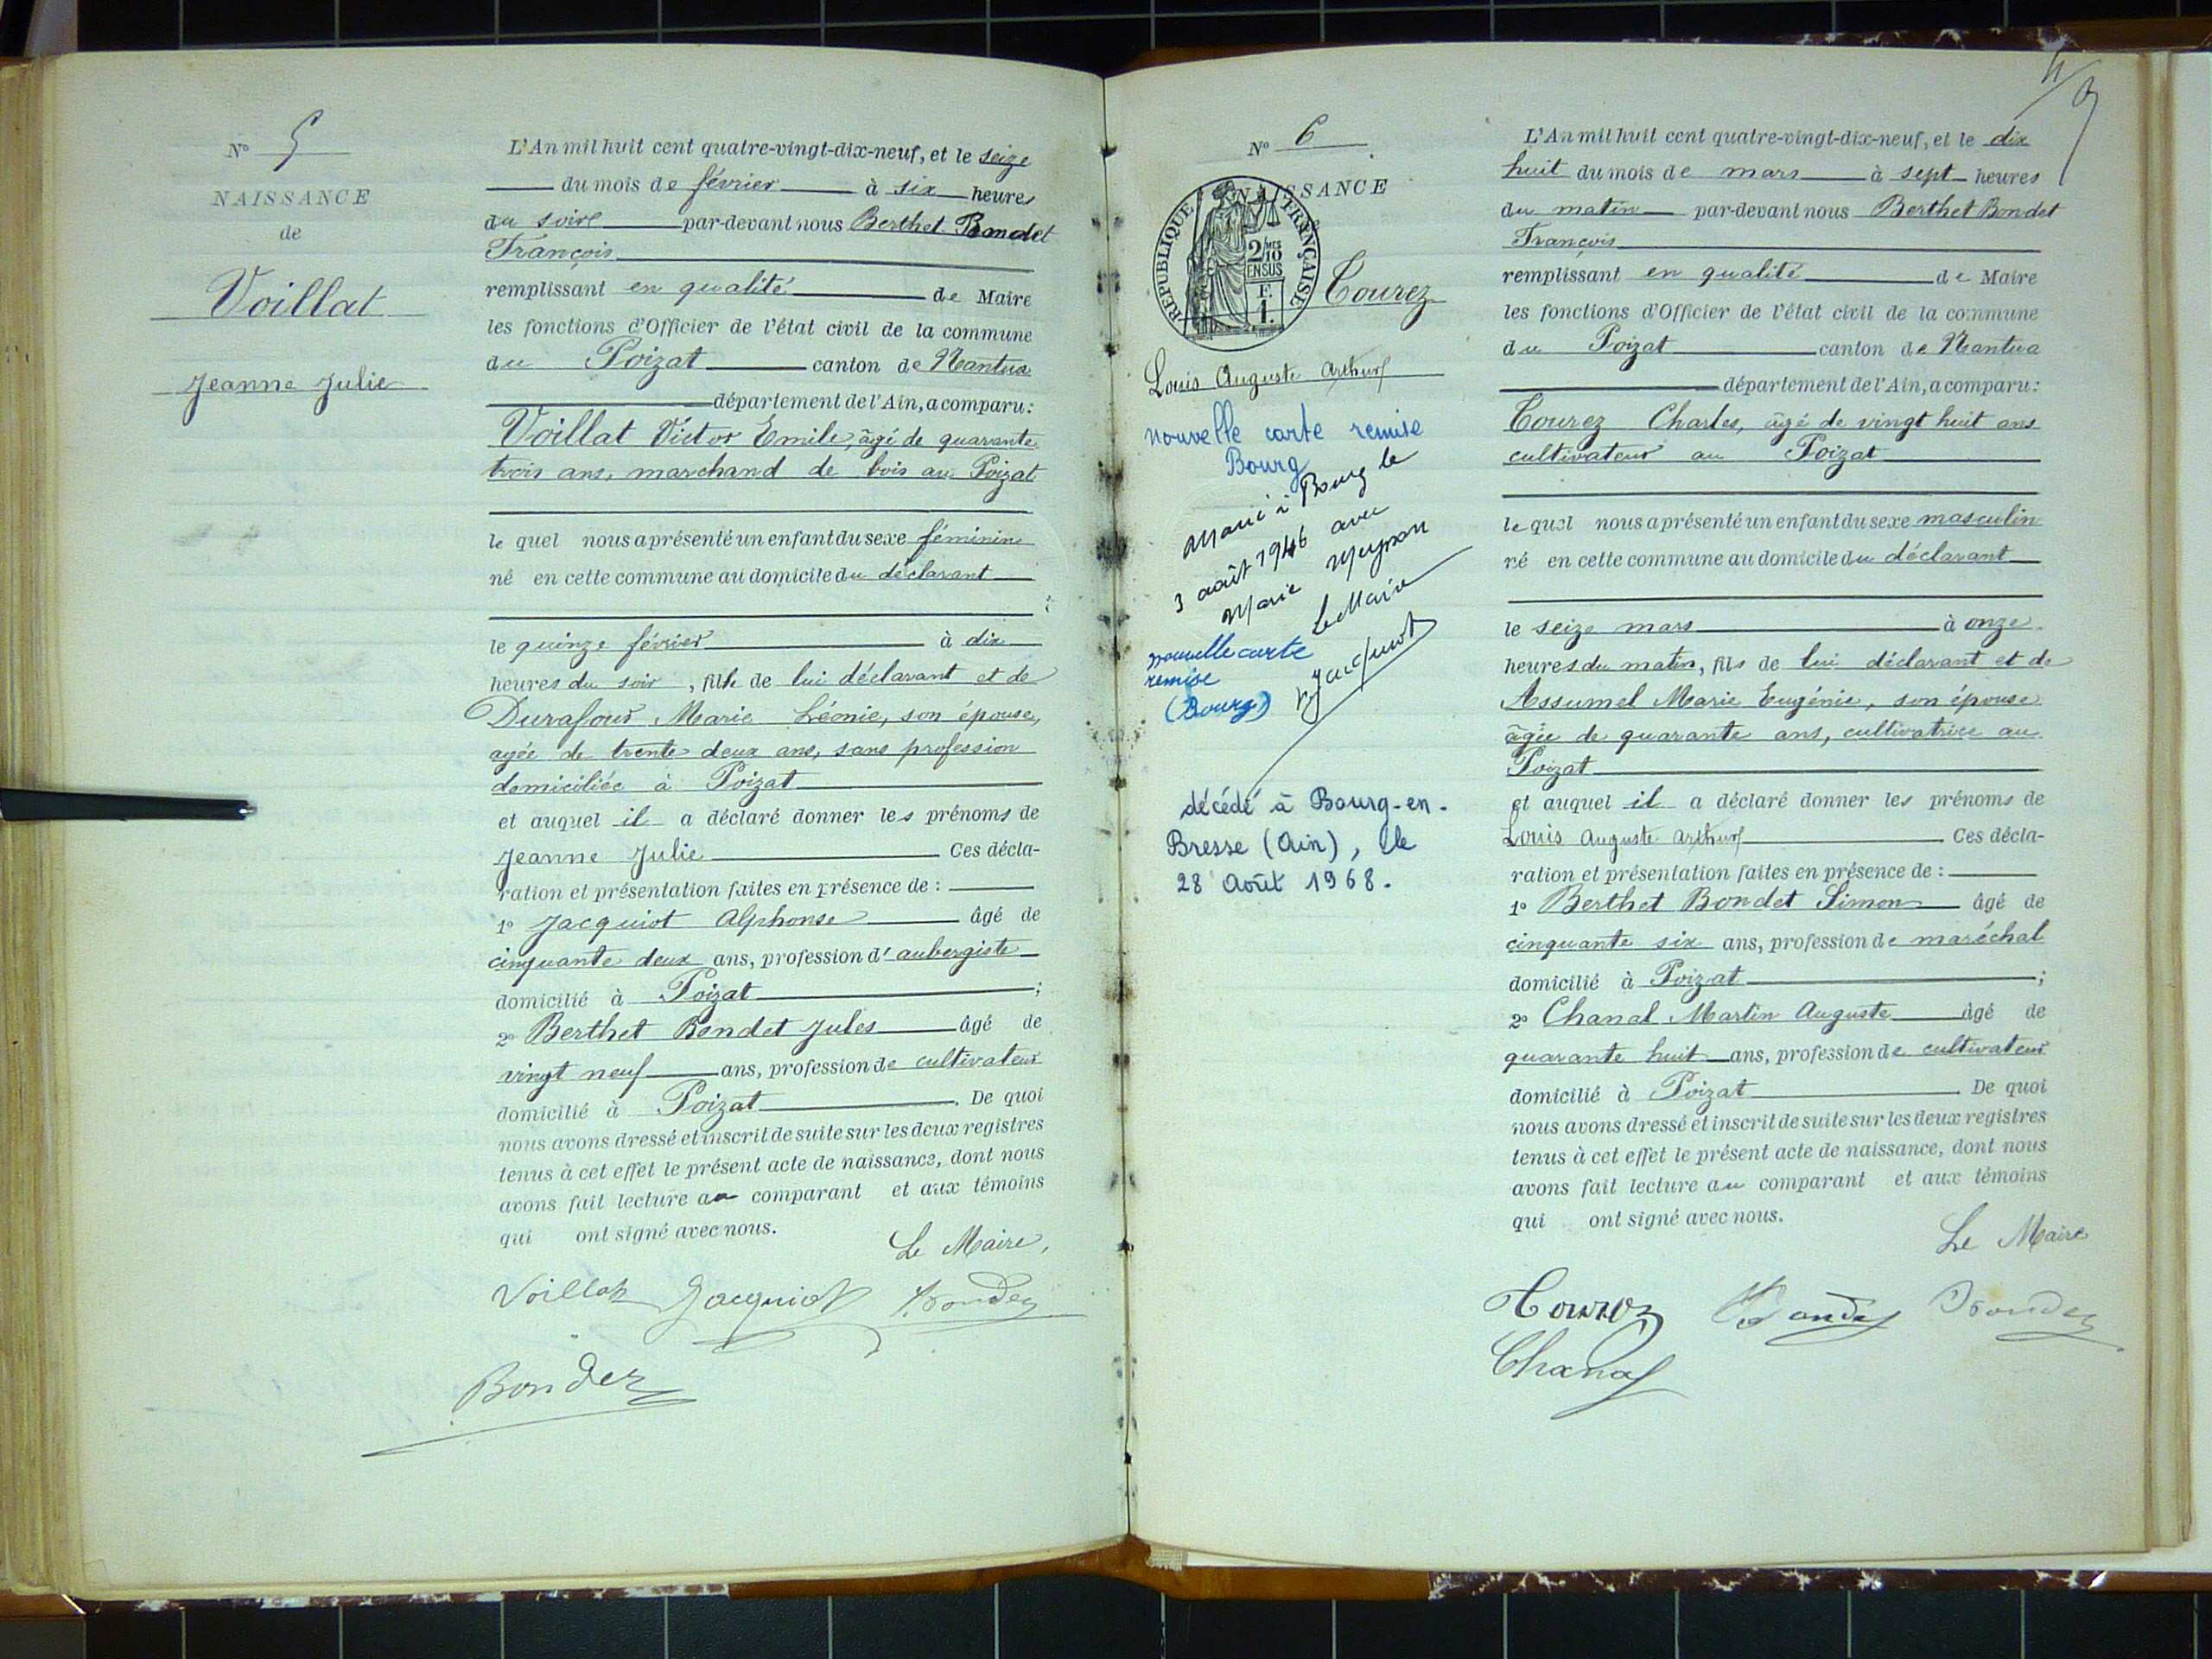 N° 5
NAISSANCE
de
Voillat
Jeanne Julie
L'An mil huit cent quatre-vingt-dix-neuf, et le seize
du mois de février à six heures
du soire par-devant nous Berthet Bondet
François
remplissant en qualité de Maire
les fonctions d'Officier de l'état civil de la commune
du Poizat canton de Nantua
département de l'Ain, a comparu :
Voillat Victor Emile, âgé de quarante
trois ans, marchand de bois au Poizat
le quel nous a présenté un enfant du sexe féminin
né en cette commune au domicile du déclarant
;
le quinze février à dix
heures du soir, fille de lui déclarant et de
Durafour Marie Léonie, son épouse,
agée de trente deux ans, sans profession
domiciliée à Poizat
et auquel il a déclaré donner les prénoms de
Jeanne Julie Ces décla-
ration et présentation faites en présence de :
1° Jacquiot Alphonse âgé de
cinquante deux ans, profession d'aubergiste
domicilié à Poizat ;
2° Berthet Bondet Jules âgé de
vingt neuf ans, profession de cultivateur
domicilié à Poizat. De quoi
nous avons dressé et inscrit de suite sur les deux registres
tenus à cet effet le présent acte de naissance, dont nous
avons fait lecture au comparant et aux témoins
qui ont signé avec nous.
Le Maire,
Voillat Jacquiot
Bondet
4
N° 6
NAISSANCE
REPUBLIQUE FRANÇAISE
2/10MES
EN SUS
F.
1.
Tourez
Louis Auguste Arthur
nouvelle carte remise
Bourg
Marié à Bourg le
3 août 1946 avec
Marie
Le Maire
nouvelle carte
remise
(Bourg)
décédé à Bourg-en-
Bresse (Ain), le
28 Août 1968.
L'An mil huit cent quatre-vingt-dix-neuf, et le dix
huit du mois de mars à sept heures
du matin par-devant nous Berthet Bondet
François
remplissant en qualité de Maire
les fonctions d'Officier de l'état civil de la commune
du Poizat canton de Nantua
département de l'Ain, a comparu :
Tourez Charles, âgé de vingt huit ans
cultivateur au Poizat
le quel nous a présenté un enfant du sexe masculin
né en cette commune au domicile du déclarant
le seize mars à onze
heures du matin, fils de lui déclarant et de
Assumel Marie Eugénie, son épouse
âgée de quarante ans, cultivatrice au
Poizat
et auquel il a déclaré donner les prénoms de
Louis Auguste Arthur Ces décla-
ration et présentation faites en présence de :
1° Berthet Bondet Simon âgé de
cinquante six ans, profession de maréchal
domicilié à Poizat ;
2° Chanal Martin Auguste âgé de
quarante huit ans, profession de cultivateur
domicilié à Poizat De quoi
nous avons dressé et inscrit de suite sur les deux registres
tenus à cet effet le présent acte de naissance, dont nous
avons fait lecture au comparant et aux témoins
qui ont signé avec nous.
Le Maire
Tourez
Chanal